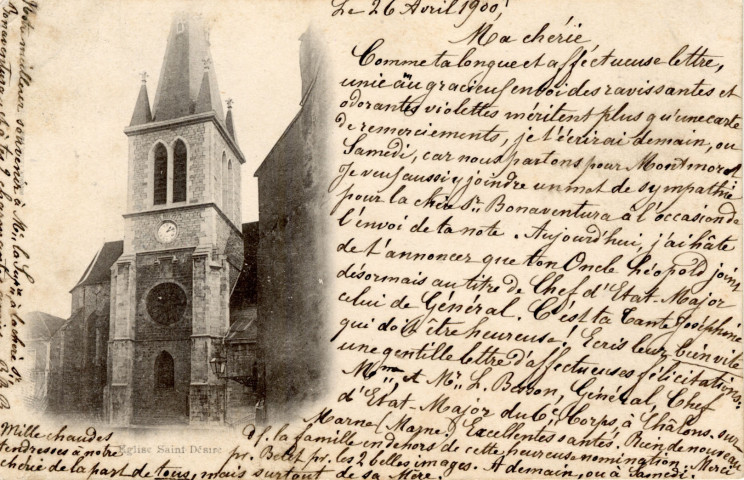 Le 26 Avril 1900!
Ma chérie
Comme ta longue et affectueuse lettre,
unie au gracieux envoi des ravissantes et
odorantes violettes méritent plus qu'une carte
de remerciements, je t'écrirai demain, ou
Samedi, car nous partons pour Montmorot
Je veux aussi y joindre un mot de sympathie
pour la chère Sr. Bonaventura à l'occasion de
l'envoi de ta note. Aujourd'hui, j'ai hâte
de t'annoncer que ton Oncle Léopold joint
désormais au titre de Chef d'Etat-Major
celui de Général. C'est ta Tante Joséphine
qui doit être heureuse! Ecris leur bien vite
une gentille lettre d'affectueuses félicitations.
Mme. et Mr. L. Besson, Général, Chef
d'Etat-Major du 6e Corps, à Châlons-sur
Marne (Marne). Excellentes santés. Rien de nouveau
ds. la famille en dehors de cette heureuse nomination. Merci
pr. Belet pr. les 2 belles images. A demain, ou à Samedi.
Mille chaudes
tendresses à notre
chérie de la part de tous, mais surtout de sa Mère.
Eglise Saint Désiré
Notre meilleur souvenir à Me. la Supre. à la chère Sr.
Bonaventura et à tes 9 charmantes